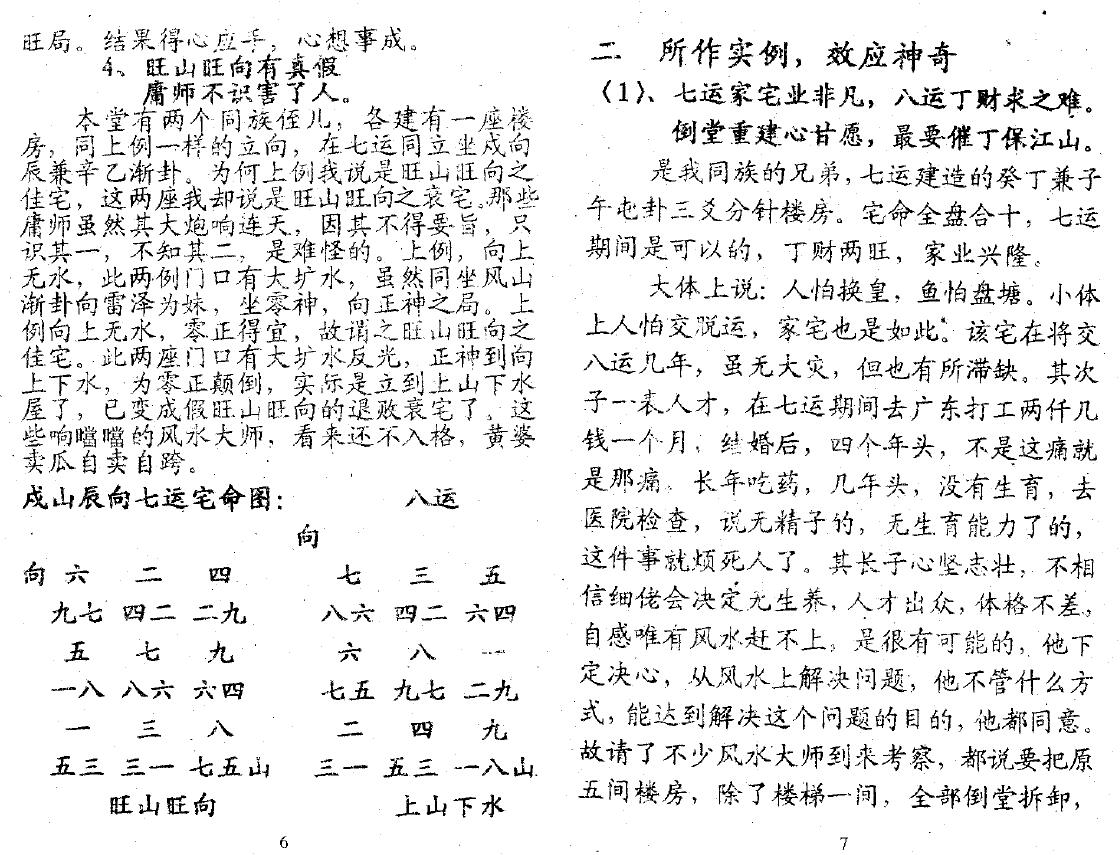 旺局。结果得心应手，心想事成。
4、旺山旺向有真假
庸师不识害了人。
本堂有两个同族侄儿，各建有一座楼
房，同上例一样的立向，在七运同立坐戍向
辰兼辛乙渐卦。为何上例我说是旺山旺向之
佳宅，这两座我却说是旺山旺向之衰宅。那些
庸师虽然其大炮响连天，因其不得要旨，只
识其一，不知其二，是难怪的。上例，向上
无水，此两例门口有大圹水，虽然同坐风山
渐卦向雷泽为妹，坐零神，向正神之局。上
例向上无水，零正得宜，故谓之旺山旺向之
佳宅。此两座门口有大圹水反光，正神到向
上下水，为零正颠倒，实际是立到上山下水
屋了，已变成假旺山旺向的退败衰宅了。这
些响噹噹的风水大师，看来还不入格，黄婆
卖瓜自卖自跨。
戍山辰向七运宅命图： 八运
向
向 六 二 四 七 三 五
九七 四二 二九 八六 四二 六四
五 七 九 六 八 一
一八 八六 六四 七五 九七 二九
一 三 八 二 四 九
五三 三一 七五山 三一 五三 一八山
旺山旺向 上山下水
6
二 所作实例，效应神奇
（1）、七运家宅业非凡，八运丁财求之难。
倒堂重建心甘愿，最要催丁保江山。
是我同族的兄弟，七运建造的癸丁兼子
午屯卦三爻分针楼房。宅命全盘合十，七运
期间是可以的，丁财两旺，家业兴隆。
大体上说：人怕换皇，鱼怕盘塘。小体
上人怕交脱运，家宅也是如此。该宅在将交
八运几年，虽无大灾，但也有所滞缺。其次
子一表人才，在七运期间去广东打工两仟几
钱一个月，结婚后，四个年头，不是这痛就
是那痛。长年吃药，几年头，没有生育，去
医院检查，说无精子的，无生育能力了的，
这件事就烦死人了。其长子心坚志壮，不相
信细佬会决定无生养，人才出众，体格不差。
自感唯有风水赶不上，是很有可能的，他下
定决心，从风水上解决问题，他不管什么方
式，能达到解决这个问题的目的，他都同意。
故请了不少风水大师到来考察，都说要把原
五间楼房，除了楼梯一间，全部倒堂拆卸，
7